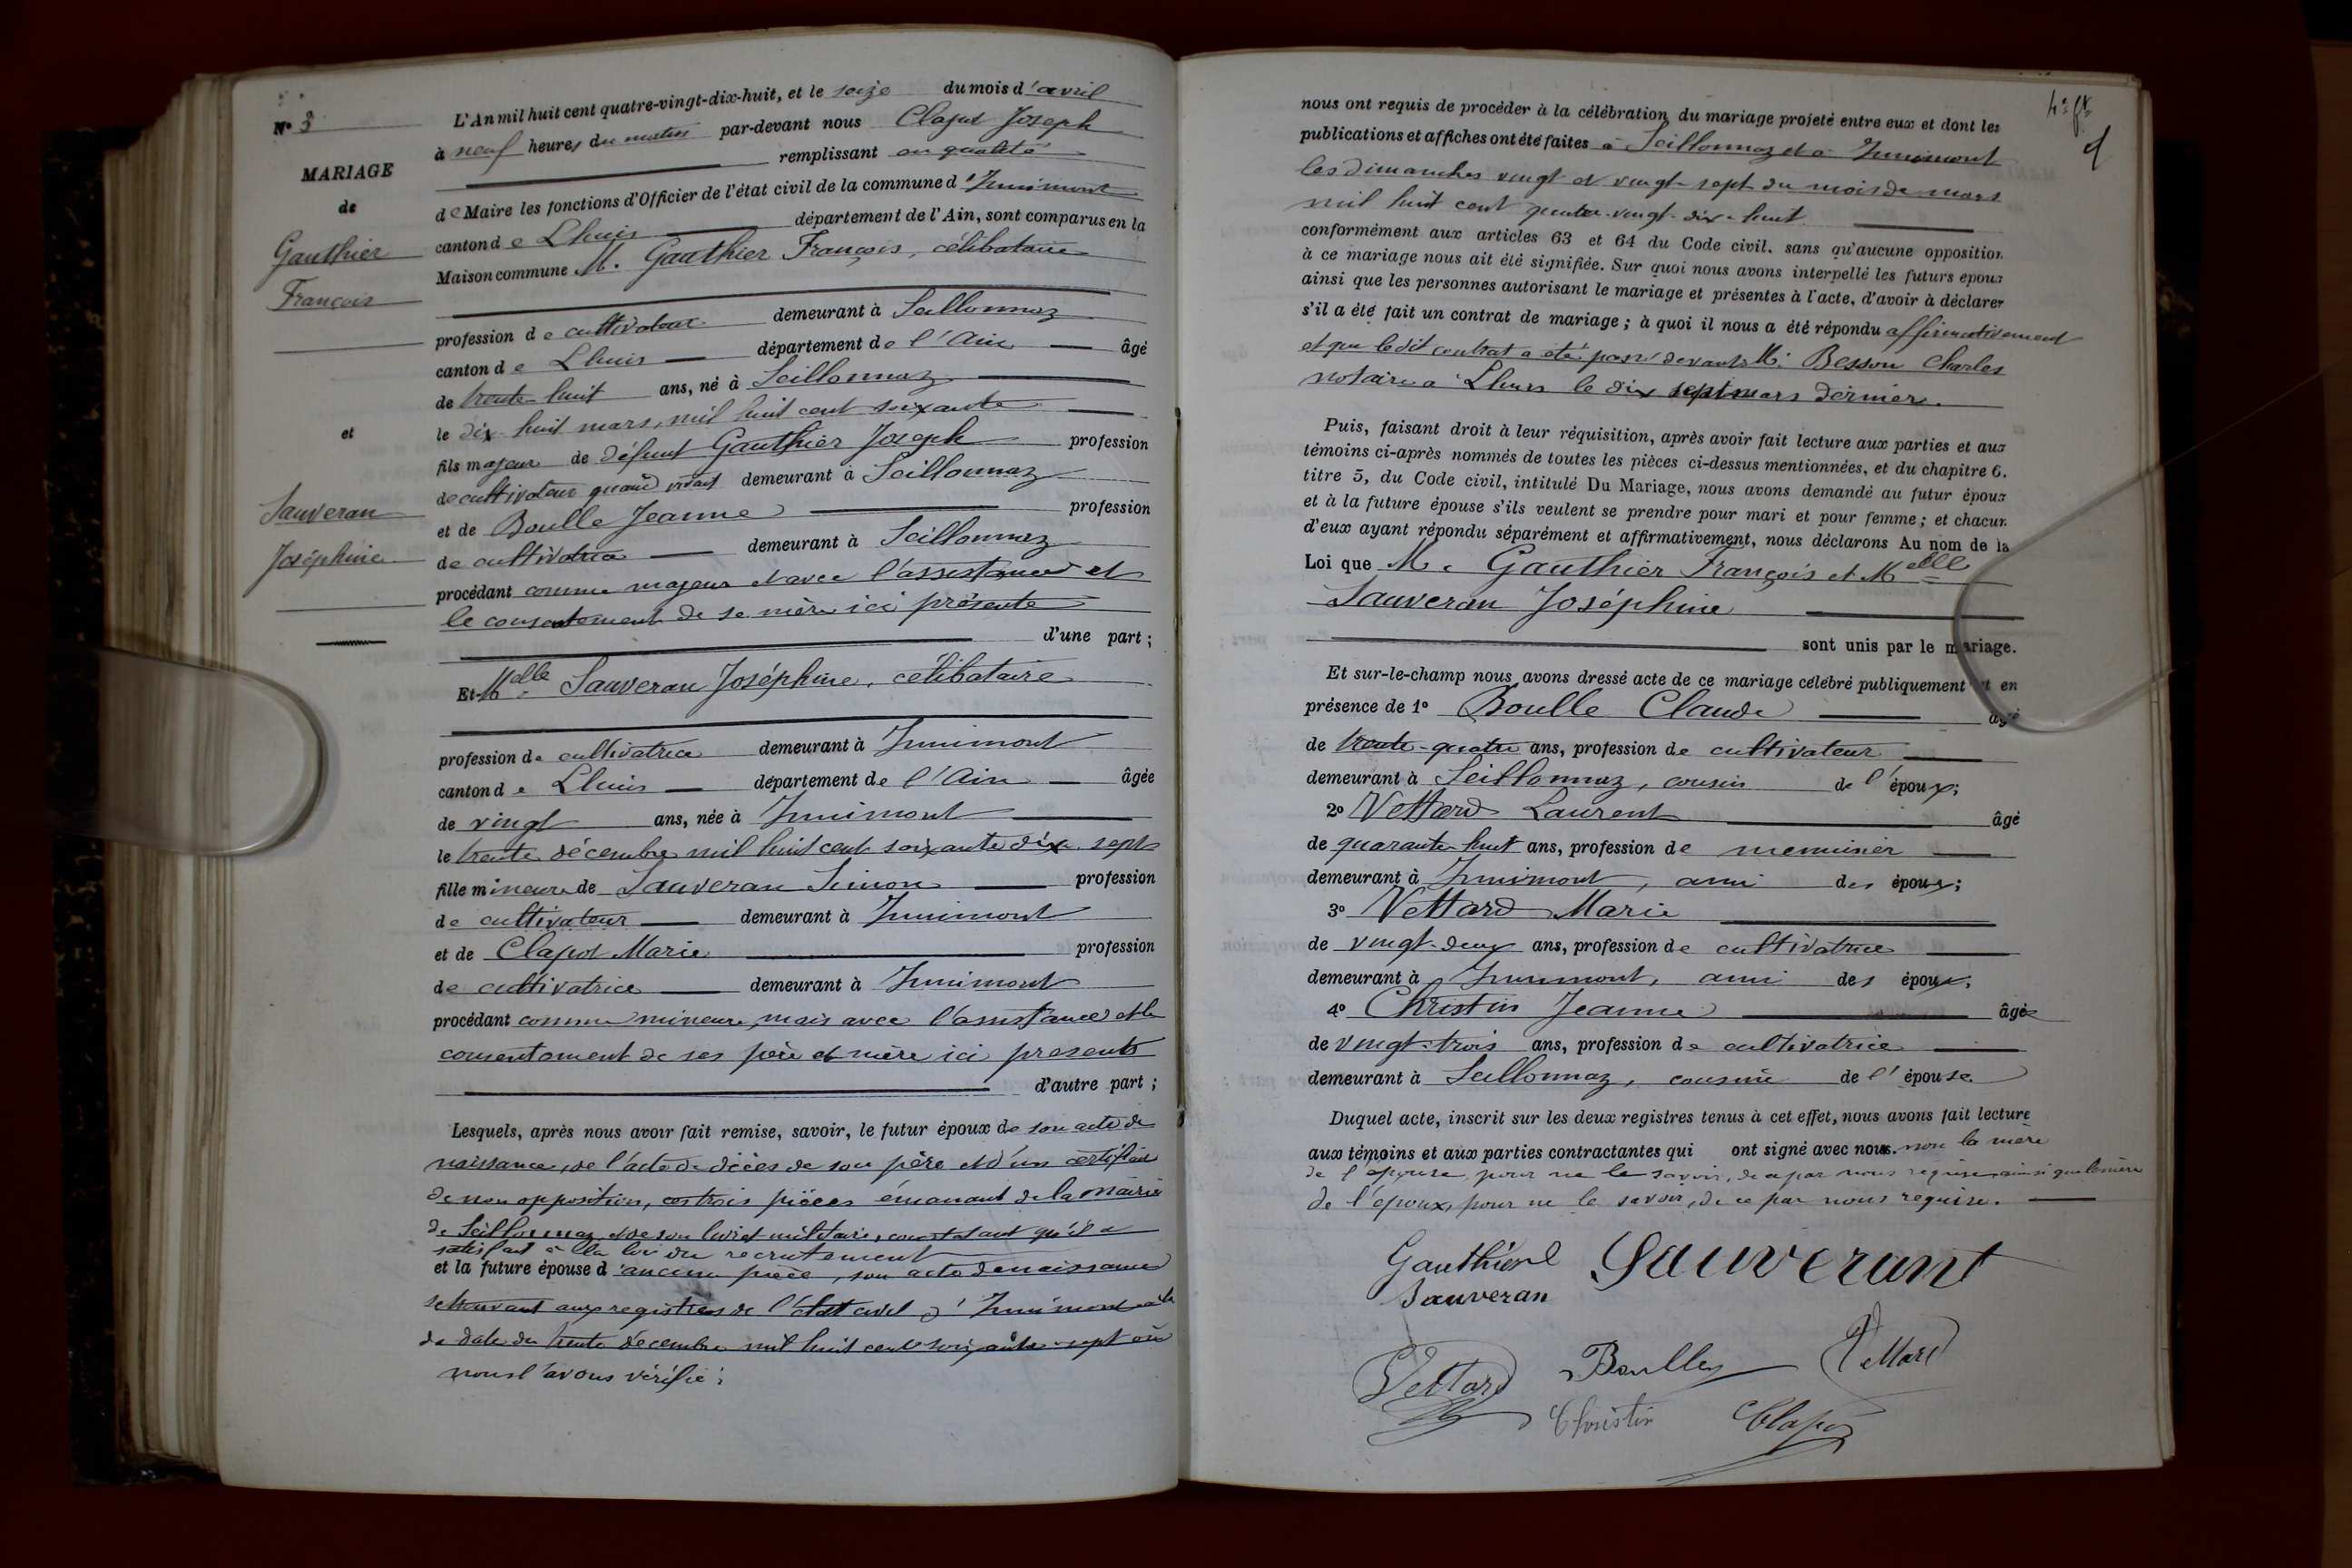 N° 3
MARIAGE
de
Gauthier
François
et
Sauveran
Joséphine
L'An mil huit cent quatre-vingt-dix-huit, et le seize du mois d'avril
à neuf heures du matin par-devant nous Clapot Joseph
remplissant en qualité
de Maire les fonctions d'Officier de l'état civil de la commune d'Innimont
canton de Lhuis département de l'Ain, sont comparus en la
Maison commune M. Gauthier François, célibataire
profession de cultivateur demeurant à Seillonnaz
canton de Lhuis département de l'Ain âgé
de trente huit ans, né à Seillonnaz
le dix-huit mars, mil huit cent soixante
fils majeur de défunt Gauthier Joseph profession
de cultivateur quand vivant demeurant à Seillonnaz
et de Boulle Jeanne profession
de cultivatrice demeurant à Seillonnaz
procédant comme majeur et avec l'assistance et
le consentement de sa mère ici présente
d'une part ;
Et Melle Sauveran Joséphine, célibataire
profession de cultivatrice demeurant à Innimont
canton de Lhuis département de l'Ain âgée
de vingt ans, née à Innimont
le trente décembre mil huit cent soixante dix-sept
fille mineure de Sauveran Simon profession
de cultivateur demeurant à Innimont
et de Clapot Marie profession
de cultivatrice demeurant à Innimont
procédant comme mineure, mais avec l'assistance et le
consentement de ses père et mère ici presents
d'autre part ;
Lesquels, après nous avoir fait remise, savoir, le futur époux de son acte de
naissance, de l'acte de décès de son père et d'un certificat
de non opposition, ces trois pièces émanant de la Mairie
de Seillonnaz et de son livret militaire, constatant qu'il a
satisfait à la loi du recrutement
et la future épouse d'aucune pièce, son acte de naissance
se trouvant aux registres de l'état civil d'Innimont à la
de date du trente décembre mil huit cent soixante-sept où
nous l'avons vérifié ;
nous ont requis de procéder à la célébration du mariage projeté entre eux et dont les
publications et affiches ont été faites à Seillonnaz et à Innimont
les dimanches vingt et vingt-sept du mois de mars
mil huit cent quatre-vingt-dix-huit
conformément aux articles 63 et 64 du Code civil. sans qu'aucune opposition
à ce mariage nous ait été signifiée. Sur quoi nous avons interpellé les futurs epoux
ainsi que les personnes autorisant le mariage et présentes à l'acte, d'avoir à déclarer
s'il a été fait un contrat de mariage ; à quoi il nous a été répondu affirmativement
et que ledit contrat a été passé devant Me Besson Charles
notaire à Lhuis le dix sept mars dernier.
Puis, faisant droit à leur réquisition, après avoir fait lecture aux parties et aux
témoins ci-après nommés de toutes les pièces ci-dessus mentionnées, et du chapitre 6.
titre 5, du Code civil, intitulé Du Mariage, nous avons demandé au futur époux
et à la future épouse s'ils veulent se prendre pour mari et pour femme ; et chacun
d'eux ayant répondu séparément et affirmativement, nous déclarons Au nom de la
Loi que M. Gauthier François et Melle
Sauveran Joséphine
sont unis par le mariage.
Et sur-le-champ nous avons dressé acte de ce mariage célébré publiquement et en
présence de 1° Boulle Claude âgé
de trente-quatre ans, profession de cultivateur
demeurant à Seillonnaz, cousin de l'époux ;
2° Vettard Laurent âgé
de quarante-huit ans, profession de menuisier
demeurant à Innimont, ami des époux ;
3° Vettard Marie
de vingt-deux ans, profession de cultivatrice
demeurant à Innimont, amie des époux ;
4° Christin Jeanne âgée
de vingt-trois ans, profession de cultivatrice
demeurant à Seillonnaz, cousine de l'épouse
Duquel acte, inscrit sur les deux registres tenus à cet effet, nous avons fait lecture
aux témoins et aux parties contractantes qui ont signé avec nous. non la mère
de l'epouse, pour ne le savoir, de ce par nous requise, ainsi que la mère
de l'epoux, pour ne le savoir, de ce par nous requise.
Gauthier Sauverant
Sauveran
Vettard Boulle Vettard
Christin Clapot